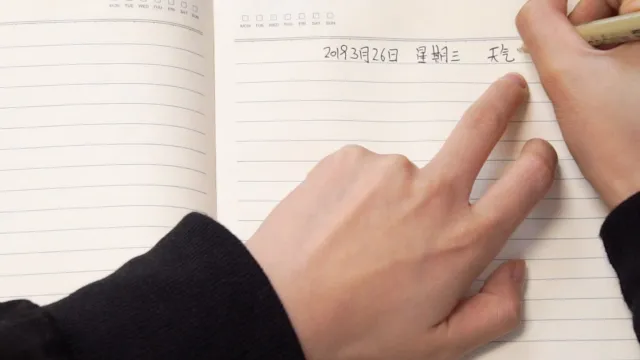 MON TUE WED THU FRI SAT SUN
MON TUE WED THU FRI SAT SUN
20193月26日 星期三 天气